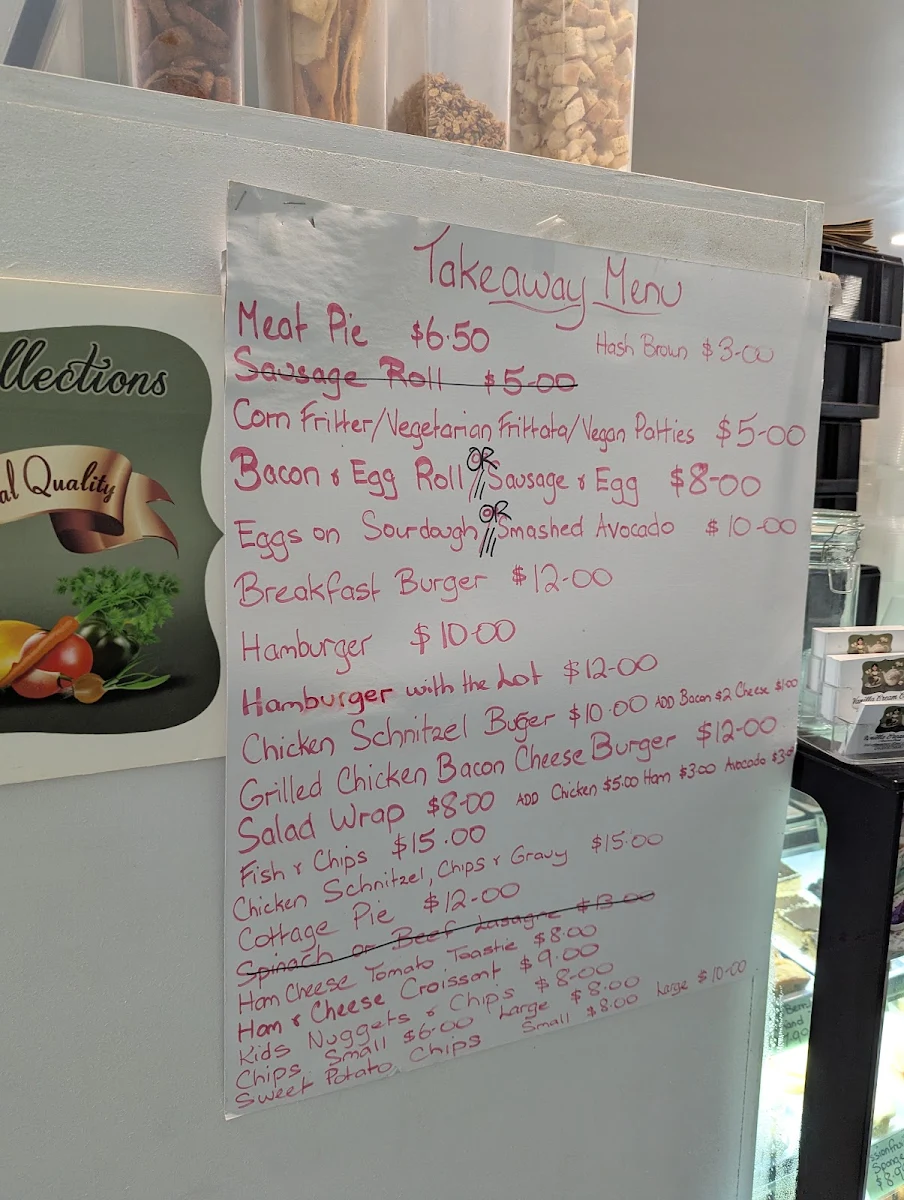 Takeaway Menu
Meat Pie $6.50
Hash Brown $3-00
Sausage Roll $5-00
Corn Fritter/Vegetarian Frittata/Vegan Patties $5-00
Bacon & Egg Roll // OR Sausage & Egg $8-00
Eggs on Sourdough // OR Smashed Avocado $10-00
Breakfast Burger $12-00
Hamburger $10.00
Hamburger with the Lot $12-00
Chicken Schnitzel Buger $10.00 ADD Bacon $2 Cheese $1.00
Grilled Chicken Bacon Cheese Burger $12-00
Salad Wrap $8-00 ADD Chicken $5.00 Ham $3.00 Avocado $3.0
Fish & Chips $15.00
Chicken Schnitzel, Chips & Gravy $15.00
Cottage Pie $12-00
Spinach or Beef Lasagne $13.00
Ham Cheese Tomato Toastie $8.00
Ham & Cheese Croissant $9.00
Kids Nuggets & Chips $8-00
Chips Small $6.00 Large $8.00
Sweet Potato Chips Small $8.00 Large $10-00
llections
al Quality